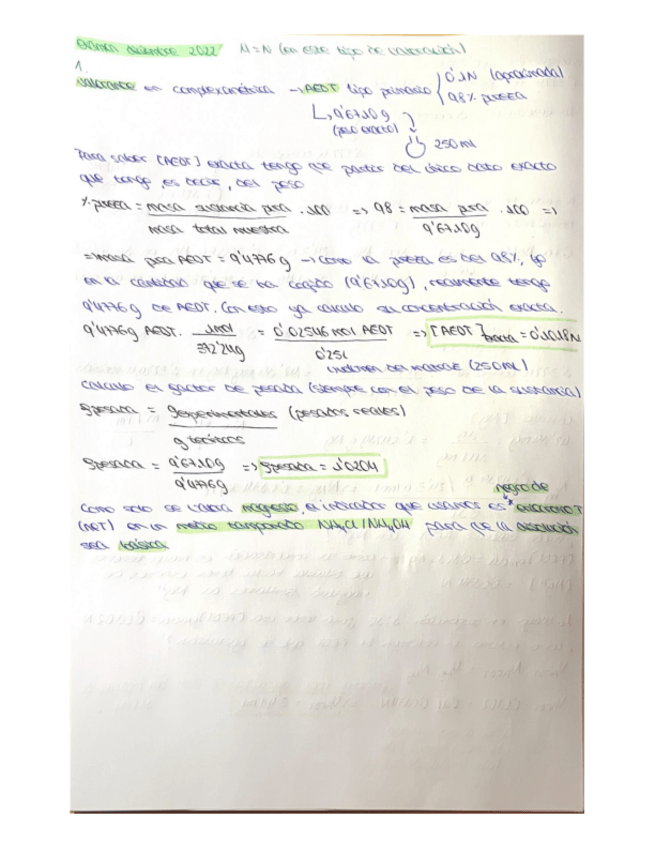 examen diciembre 2022 M=N (en este tipo de valoración)
1.
Valorante en complexometría → AEDT tipo primario { 0'1N (aproximada)
98% pureza
↳ 9'6710g
(peso exacto)
250 ml
Para saber [AEDT] exacta tengo que partir del único dato exacto
que tengo, es decir, del peso
% pureza = masa sustancia pura / masa total muestra · 100 => 98 = masa pura / 9'6710g · 100 =>
= masa pura AEDT = 9'4776 g → Como la pureza es del 98%, yo
en la cantidad que se ha cogido (9'6710g), realmente tengo
9'4776g de AEDT. Con esto ya calculo su concentración exacta.
9'4776g AEDT · 1mol / 372'24g = 0'02546 mol AEDT / 0'25l => [AEDT] exacta = 0'1018N
volumen del matraz (250ml)
Calculo el factor de pesada (siempre con el peso de la sustancia)
fpesada = g experimentales / g teóricos (pesados reales)
fpesada = 9'6710g / 9'4776g => fpesada = 1'0204
negro de
Como solo se valora magnesio, el indicador que usamos es * eriocromo T
(NET) en un medio tamponado NH4Cl/NH4OH para que la disolución
sea básica